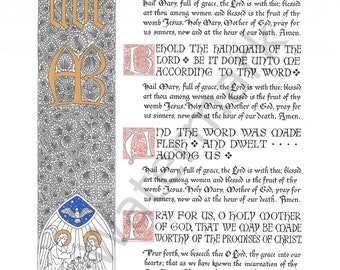 hail Mary, full of grace, the Lord is with thee; blessed
art thou among women and blessed is the fruit of thy
womb Jesus. Holy Mary, Mother of God, pray for
us sinners, now and at the hour of our death. Amen.
BEHOLD THE HANDMAID OF THE
LORD ❖ BE IT DONE UNTO ME
ACCORDING TO THY WORD ❖
hail Mary, full of grace, the Lord is with thee; blessed
art thou among women and blessed is the fruit of thy
womb Jesus. Holy Mary, Mother of God, pray for
us sinners, now and at the hour of our death. Amen.
AND THE WORD WAS MADE
FLESH ❖ AND DWELT
AMONG US ❖
hail Mary, full of grace, the Lord is with thee; blessed
art thou among women and blessed is the fruit of thy
womb Jesus. Holy Mary, Mother of God, pray for
us sinners, now and at the hour of our death. Amen.
PRAY FOR US, O HOLY MOTHER
OF GOD, THAT WE MAY BE MADE
WORTHY OF THE PROMISES OF CHRIST
Pour forth, we beseech thee O Lord, thy grace into our
hearts; that as we have known the incarnation of thy